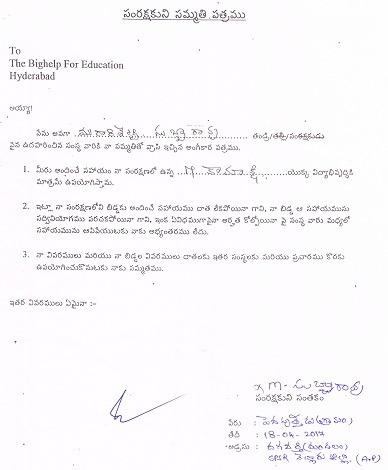 సంరక్షకుని సమ్మతి పత్రము
To
The Bighelp For Education
Hyderabad
అయ్యా!
నేను అనగా ............ సుబ్బారావు ............ తండ్రి/తల్లి/సంరక్షకుడు
పైన ఉదహరించిన సంస్థ వారికి నా సమ్మతితో వ్రాసి ఇచ్చిన అంగీకార పత్రము.
1. మీరు అందించే సహాయం నా సంరక్షణలో ఉన్న ............ యొక్క విద్యాభివృద్ధికి
మాత్రమే ఉపయోగిస్తాను.
2. ఇట్లా నా సంరక్షణలోని బిడ్డకు అందించే సహాయము దాత లేకపోయినా గాని, నా బిడ్డ ఆ సహాయమును
సద్వినియోగము పరచకపోయినా గాని, ఇంక ఏవిధముగానైనా అర్హత కోల్పోయినా పై సంస్థ వారు మధ్యలో
సహాయమును ఆపివేయుటకు నాకు అభ్యంతరము లేదు.
3. నా వివరములు మరియు నా బిడ్డల వివరములు దాతలకు ఇతర సంస్థలకు మరియు ప్రచారము కొరకు
ఉపయోగించుకొనుటకు నాకు సమ్మతము.
ఇతర వివరములు ఏమైనా :-
X M. సుబ్బారావు
సంరక్షకుని సంతకం
పేరు :
తేది : 18-04-2017
అడ్రసు : (మండలం)
SPSR నెల్లూరు జిల్లా (A.P)